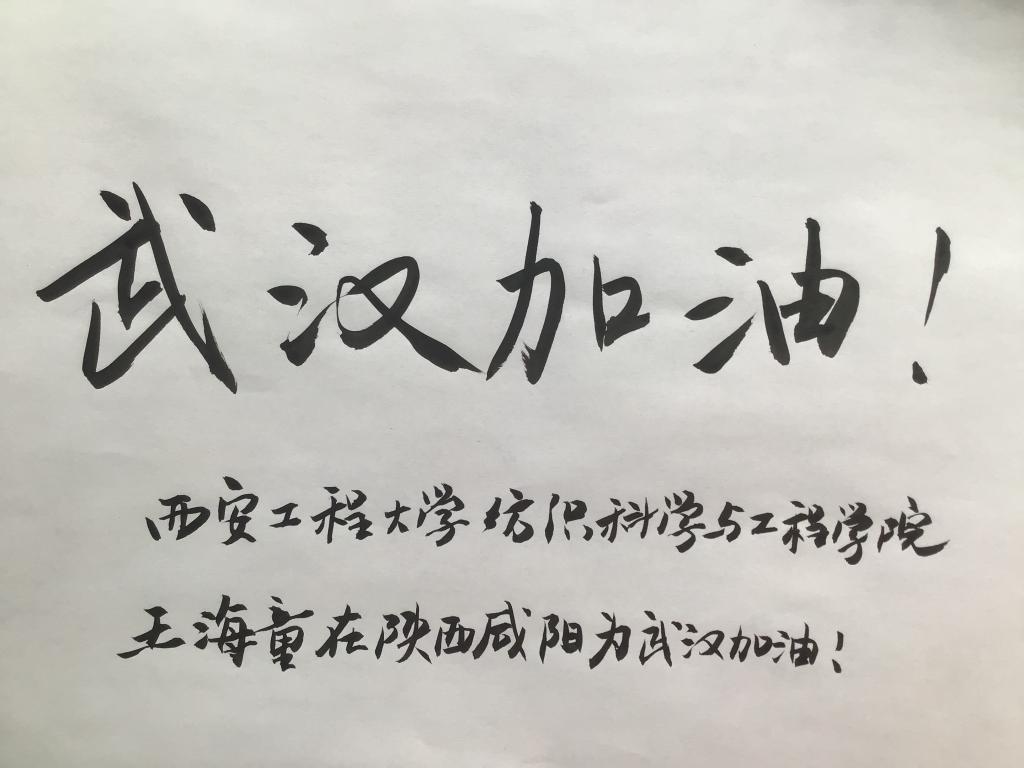 武汉加油！
西安工程大学纺织科学与工程学院
王海童在陕西咸阳为武汉加油！